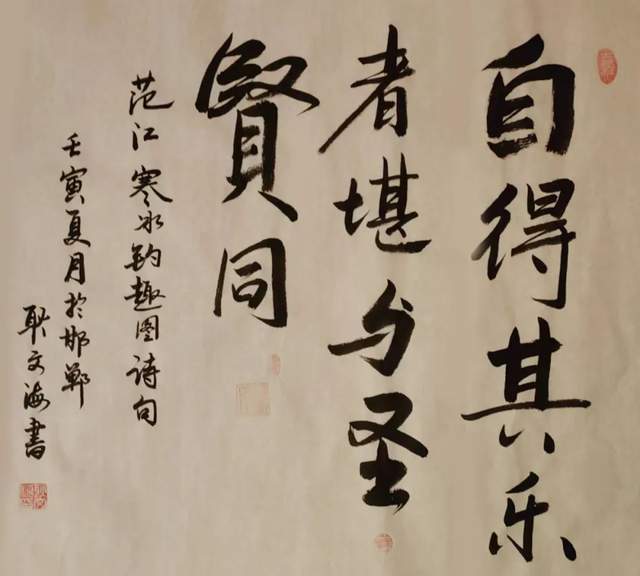 自得其乐
者堪与圣
賢同
范江寒冰钓趣图诗句
壬寅夏月於邯郸
耿文海書